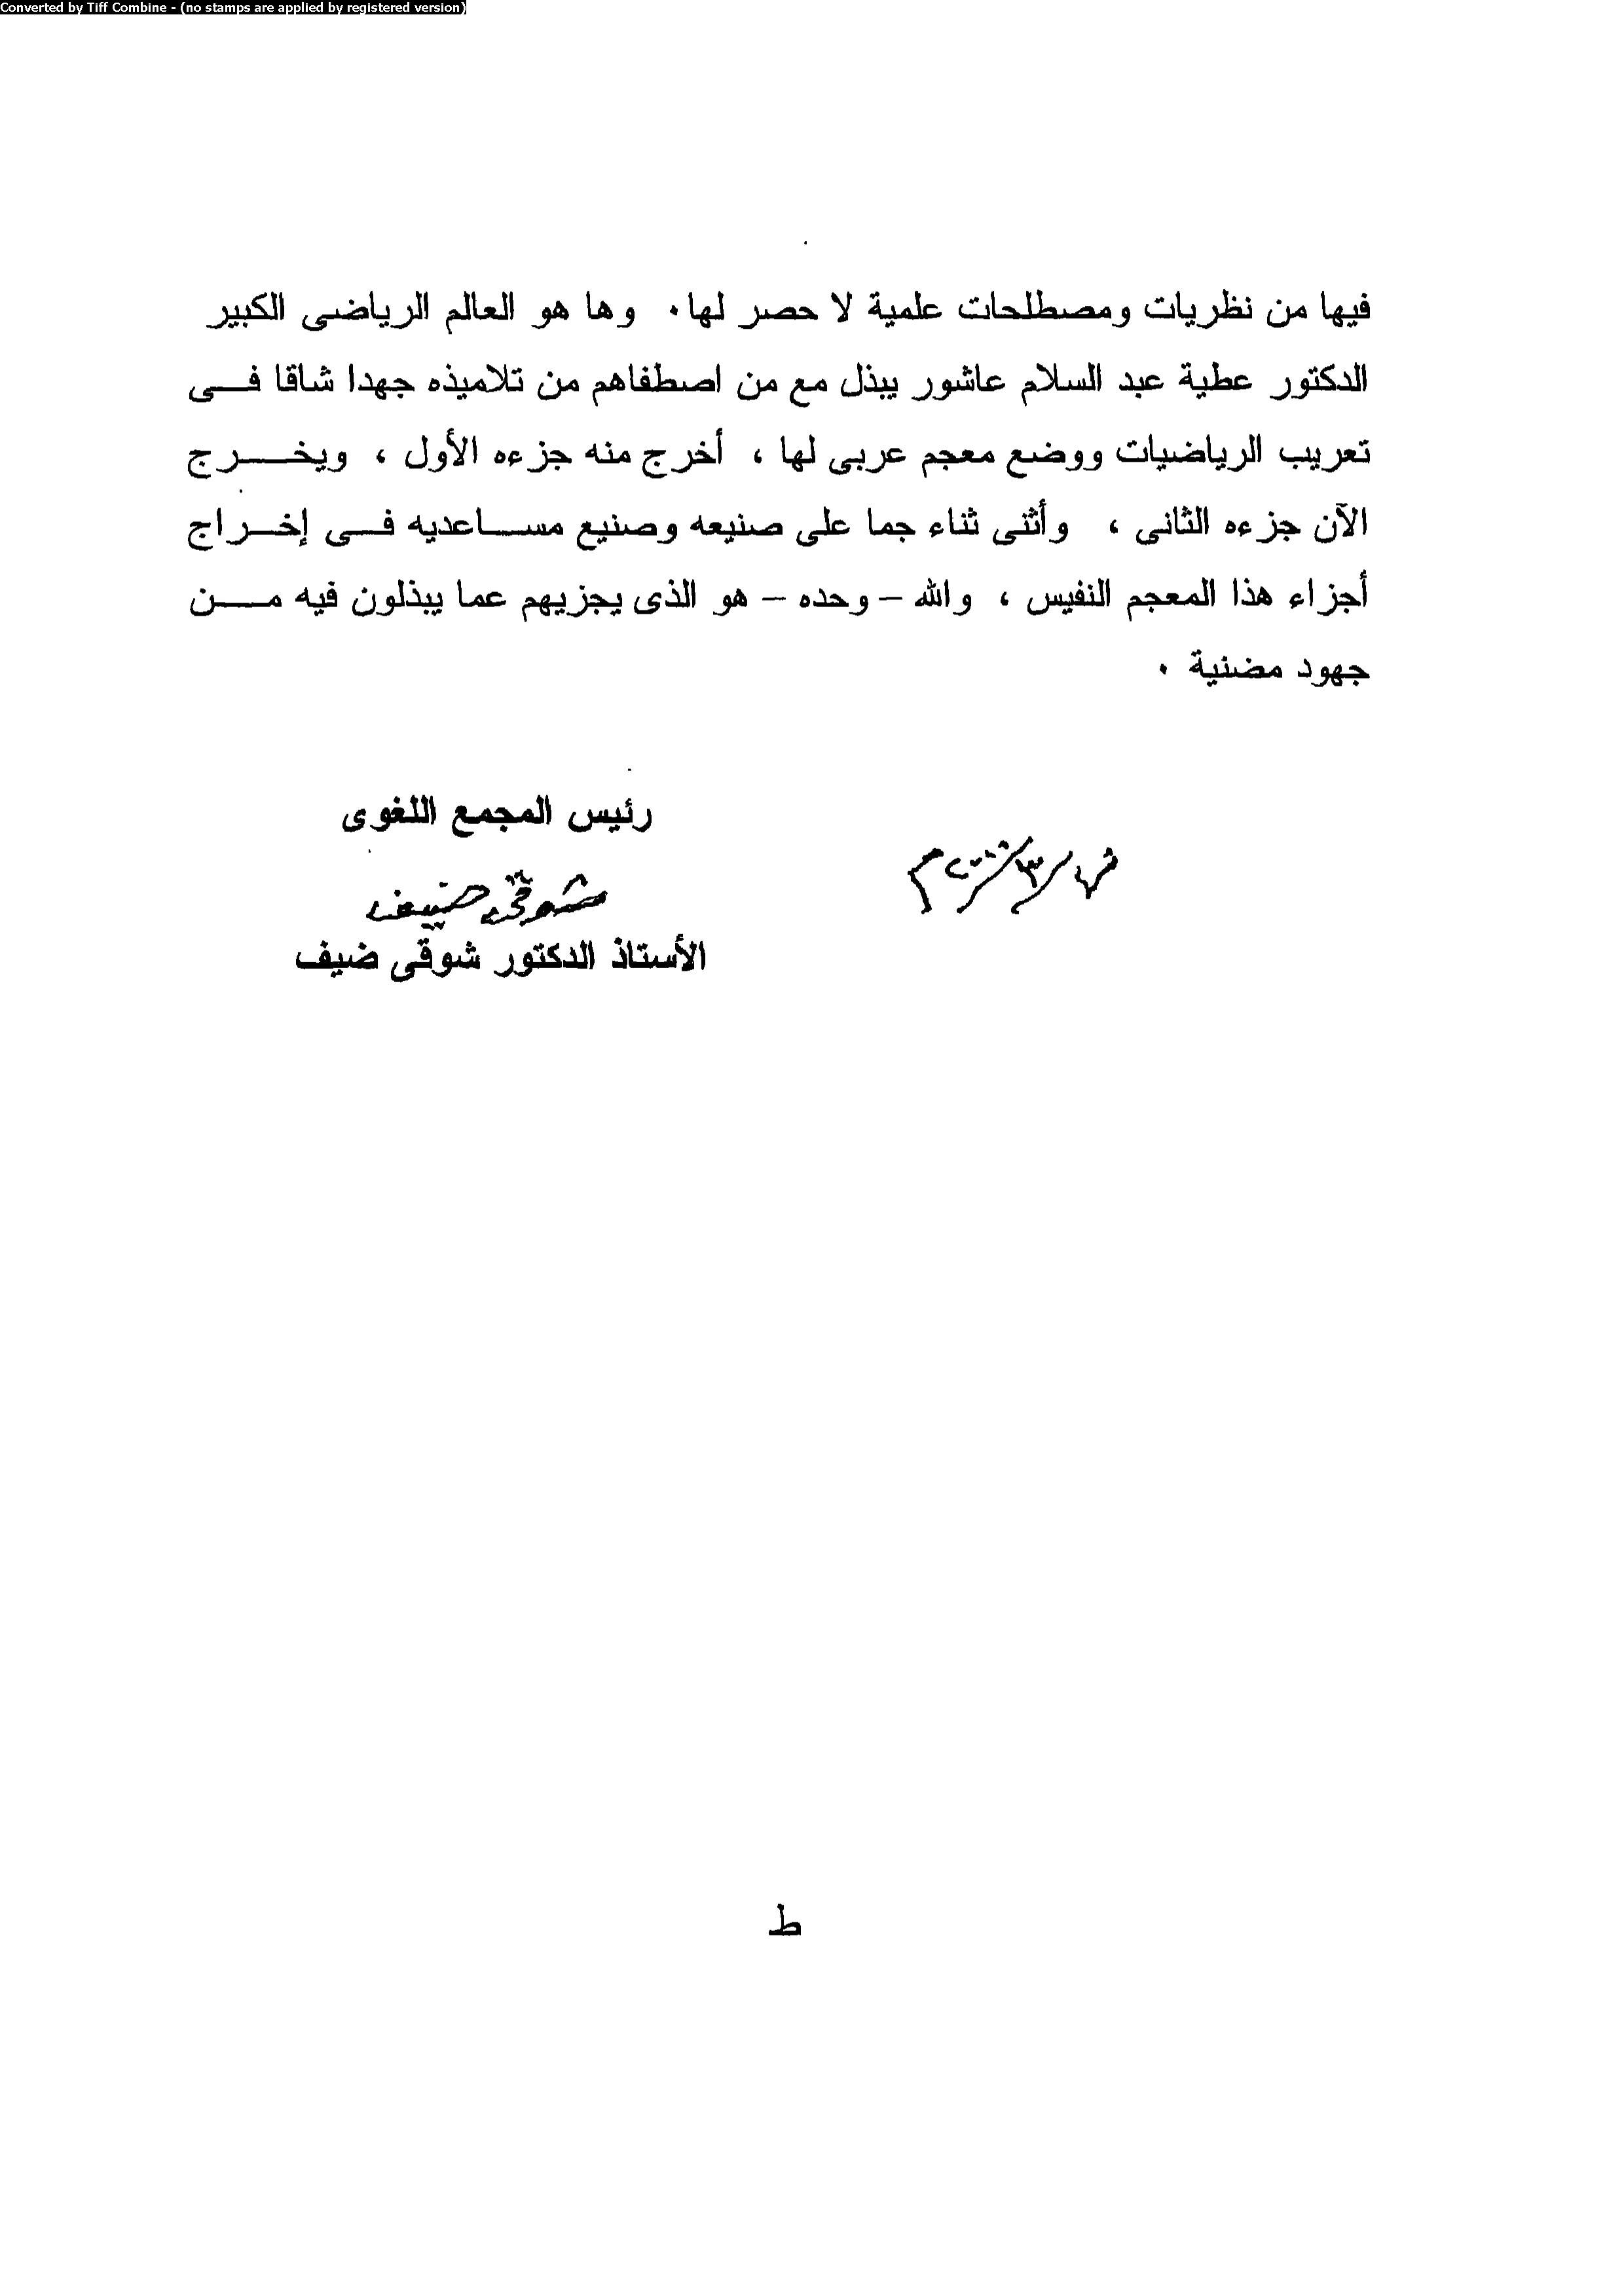 Converted by Tiff Combine - (no stamps are applied by registered version)
فيها من نظريات ومصطلحات علمية لا حصر لها٠ وها هو العالم الرياضى الكبير
الدكتور عطية عبد السلام عاشور يبذل مع من اصطفاهم من تلاميذه جهدا شاقا فـــى
تعريب الرياضيات ووضع معجم عربى لها ، أخرج منه جزءه الأول ، ويخـــــرج
الآن جزءه الثانى ، وأثنى ثناء جما على صنيعه وصنيع مســـاعديه فــى إخــراج
أجزاء هذا المعجم النفيس ، والله – وحده – هو الذى يجزيهم عما يبذلون فيه مـــــن
جهود مضنية ٠
رئيس المجمع اللغوى
شوقى ضيف
الأستاذ الدكتور شوقى ضيف
ط